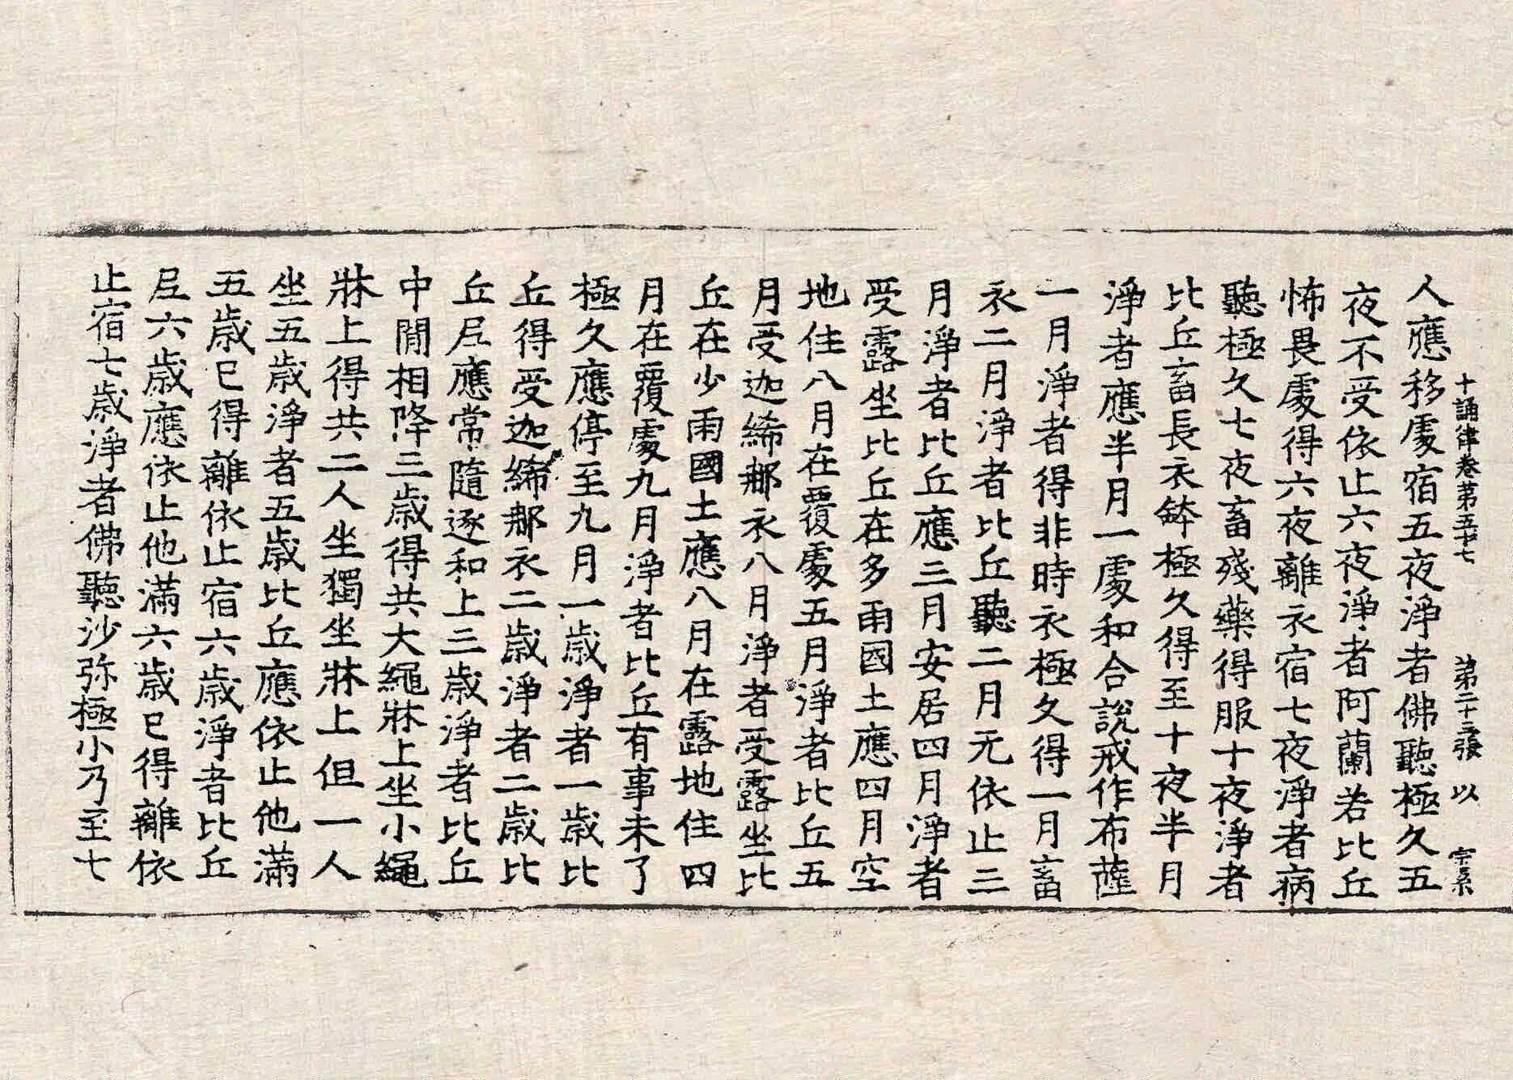 十誦律卷第五十七 第二十三張 以 宗系
人應移處宿五夜淨者佛聽極久五
夜不受依止六夜淨者阿蘭若比丘
怖畏處得六夜離衣宿七夜淨者病
聽極久七夜畜殘藥得服十夜淨者
比丘畜長衣鉢極久得至十夜半月
淨者應半月一處和合說戒作布薩
一月淨者得非時衣極久得一月畜
衣二月淨者比丘聽二月无依止三
月淨者比丘應三月安居四月淨者
受露坐比丘在多雨國土應四月空
地住八月在覆處五月淨者比丘五
月受迦絺那衣八月淨者受露坐比
丘在少雨國土應八月在露地住四
月在覆處九月淨者比丘有事未了
極久應停至九月一歲淨者一歲比
丘得受迦絺那衣二歲淨者二歲比
丘尼應常隨逐和上三歲淨者比丘
中閒相降三歲得共大繩牀上坐小繩
牀上得共二人坐獨坐牀上但一人
坐五歲淨者五歲比丘應依止他滿
五歲已得離依止宿六歲淨者比丘
尼六歲應依止他滿六歲已得離依
止宿七歲淨者佛聽沙弥極小乃至七